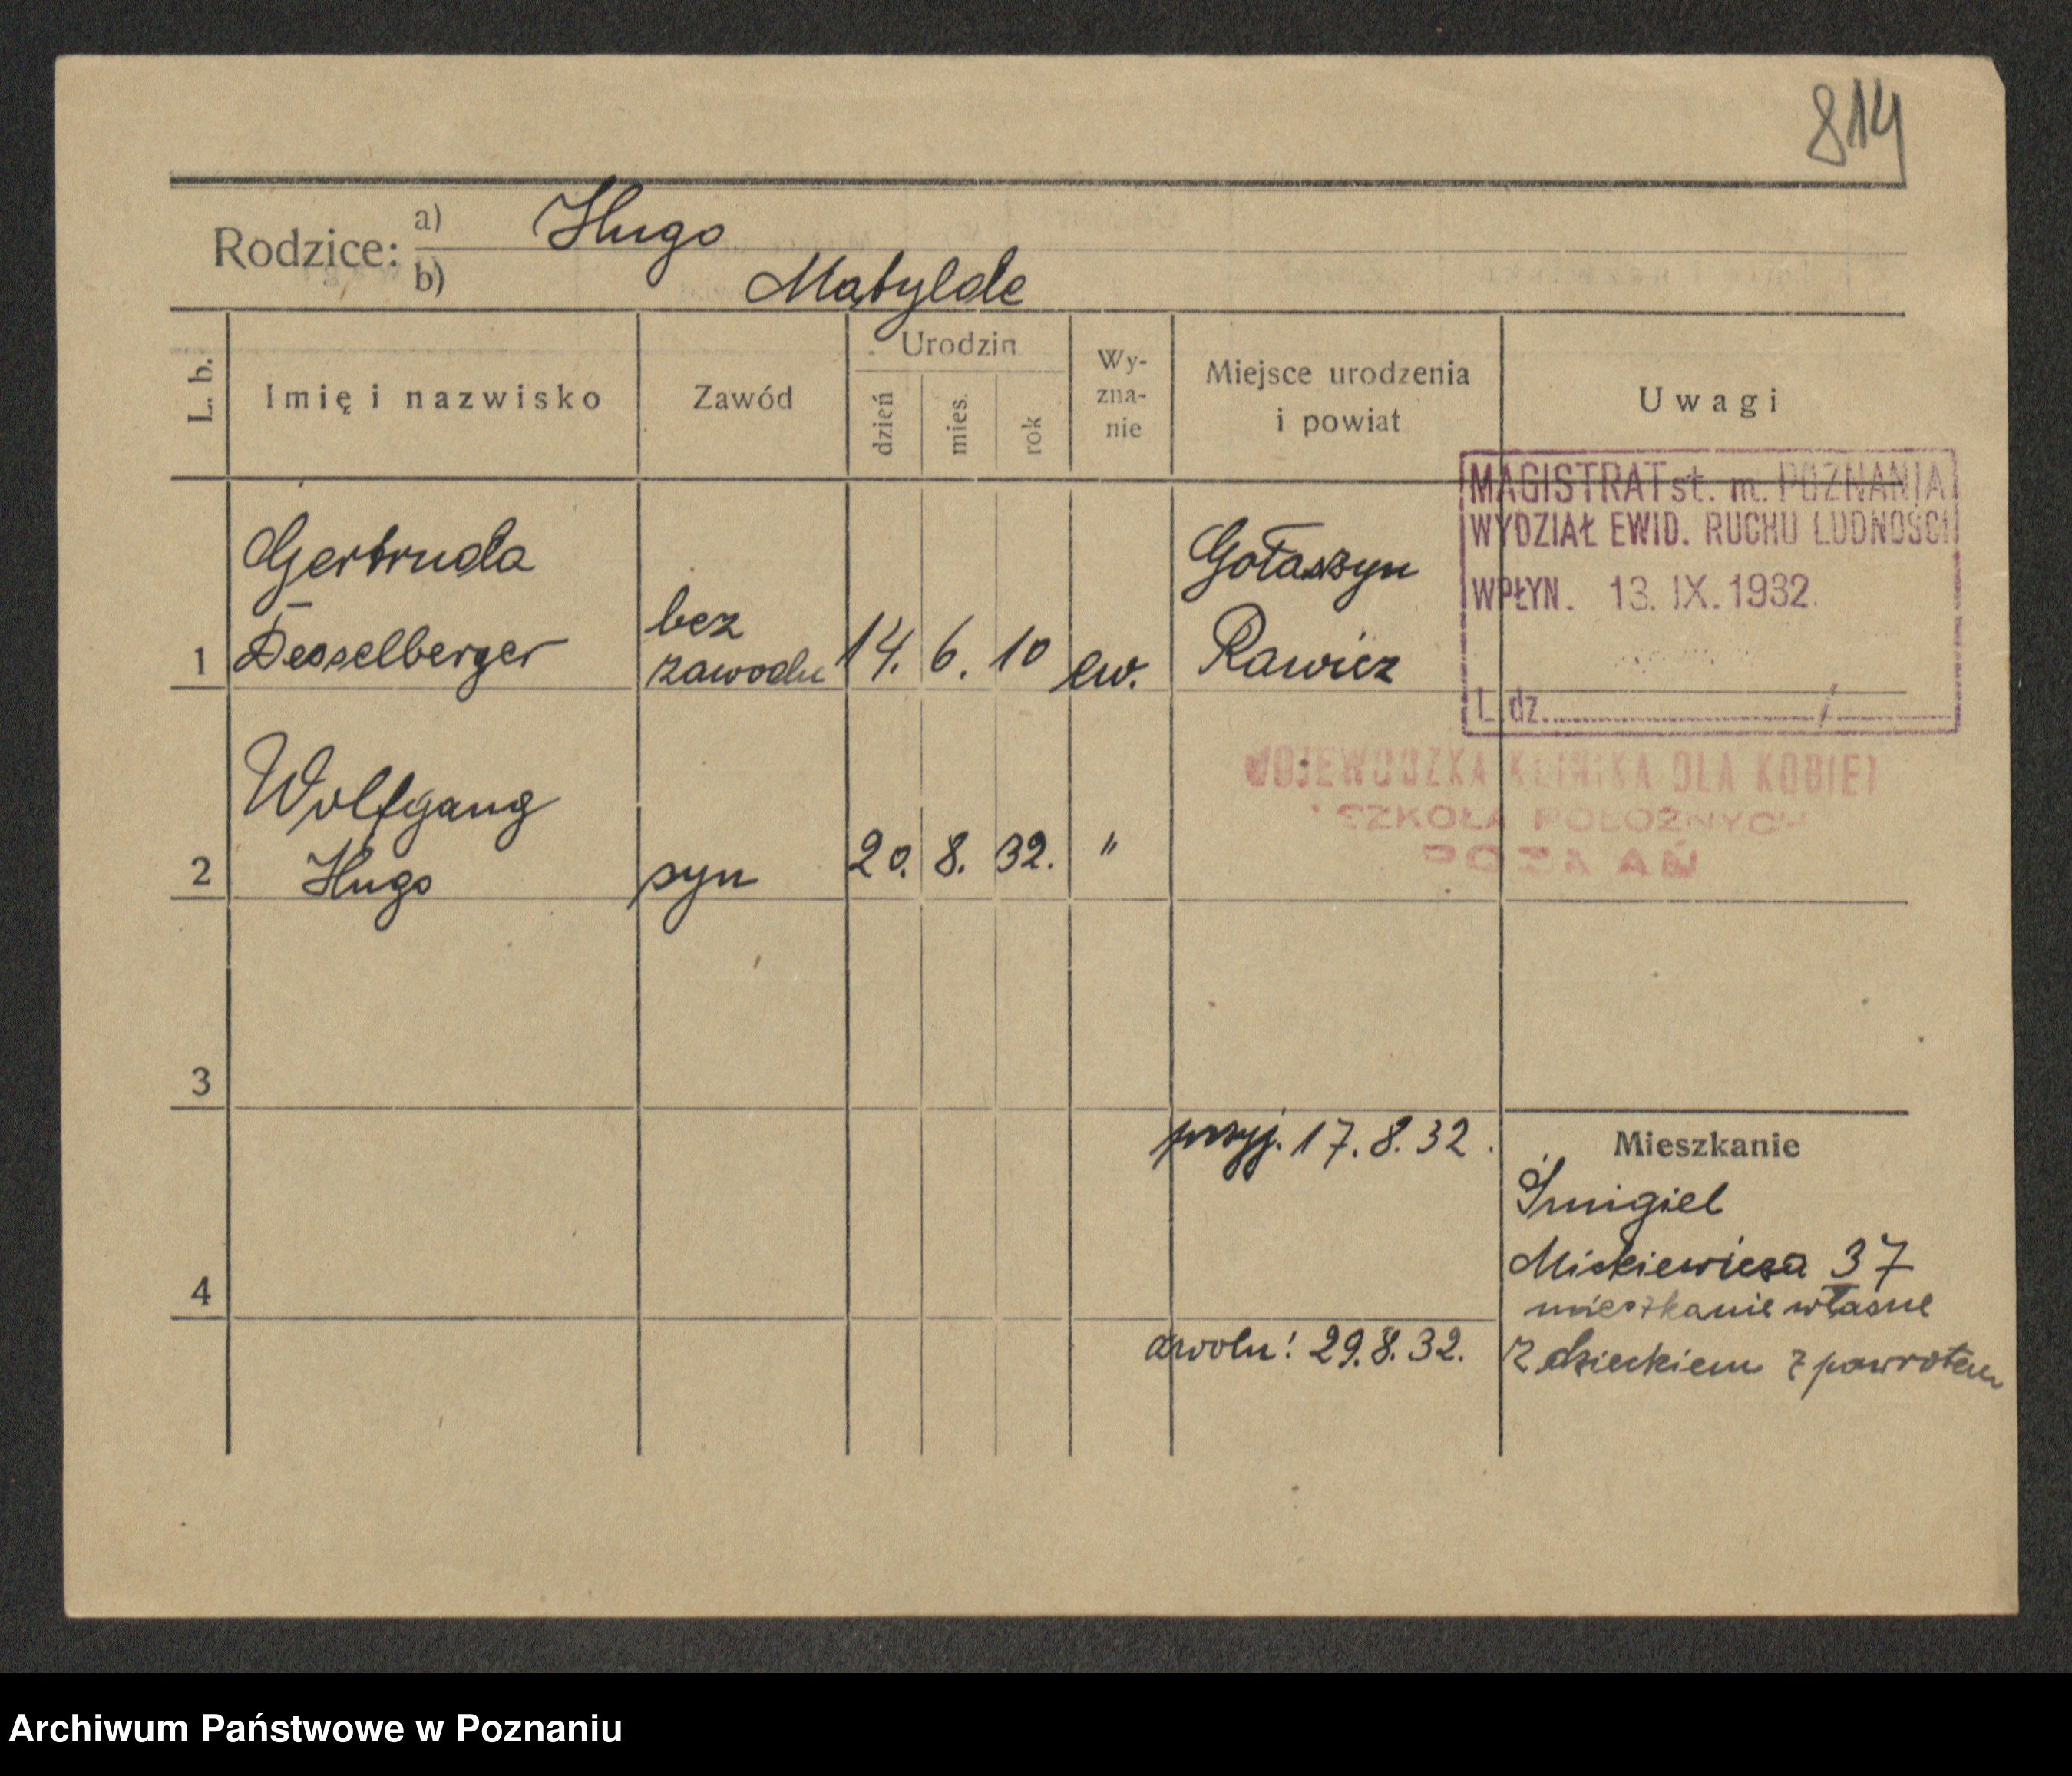 814
Rodzice: a) Hugo
b) Matylde
L. b.
Imię i nazwisko
Zawód
Urodzin
dzień
mies.
rok
Wy-
zna-
nie
Miejsce urodzenia
i powiat
Uwagi
MAGISTRAT st. m. POZNANIA
WYDZIAŁ EWID. RUCHU LUDNOŚCI
WPŁYN. 13. IX. 1932.
L. dz. /
1
Gertruda
Desselberger
bez
zawodu
14. 6. 10
ew.
Gołaszyn
Rawicz
WOJEWÓDZKA KLINIKA DLA KOBIET
SZKOŁA POŁOŻNYCH
POZNAŃ
2
Wolfgang
Hugo
syn
20. 8. 32.
"
3
przyj. 17. 8. 32.
Mieszkanie
Śmigiel
Mickiewicza 37
mieszkanie własne
4
zwoln: 29. 8. 32.
z dzieckiem z powrotem
Archiwum Państwowe w Poznaniu